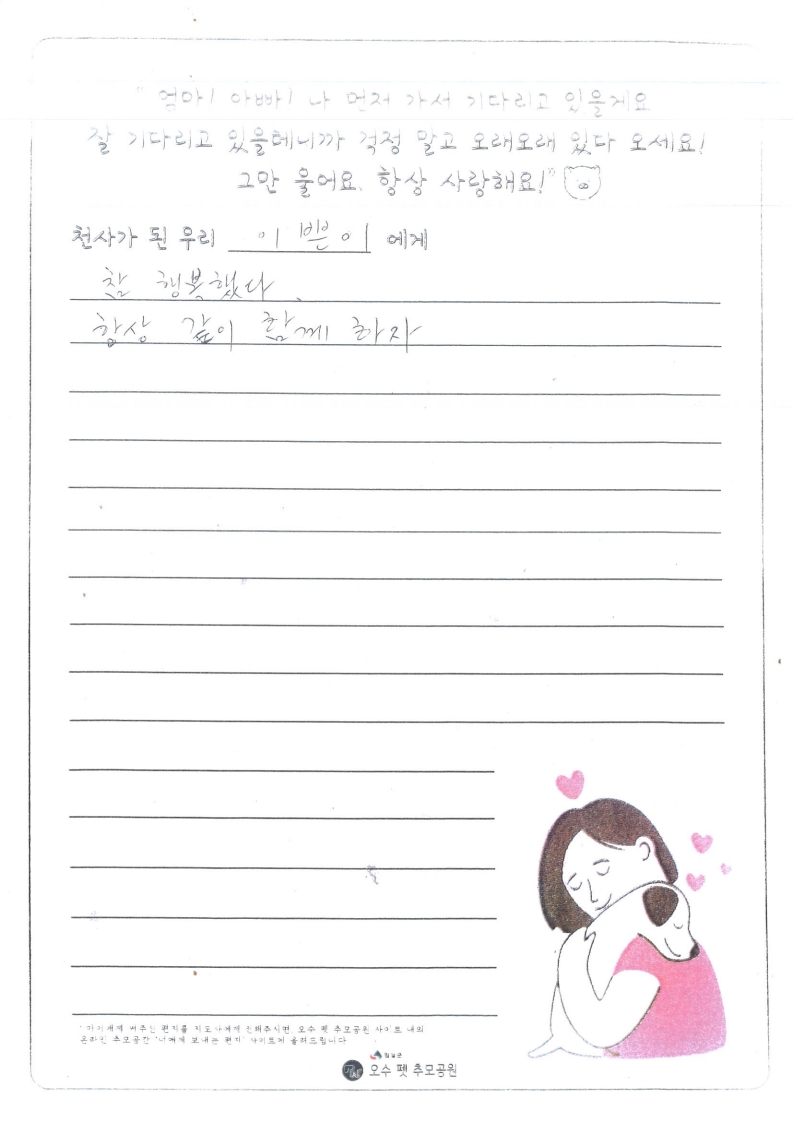 "엄마! 아빠! 나 먼저 가서 기다리고 있을게요
잘 기다리고 있을테니까 걱정 말고 오래오래 있다 오세요!
그만 울어요. 항상 사랑해요!"
천사가 된 우리 이쁜이 에게
참 행복했다.
항상 같이 함께 하자
아이에게 써주신 편지를 지도사에게 전해주시면, 오수 펫 추모공원 사이트 내의
온라인 추모공간 '너에게 보내는 편지' 사이트에 올려드립니다
임실군
오수 펫 추모공원